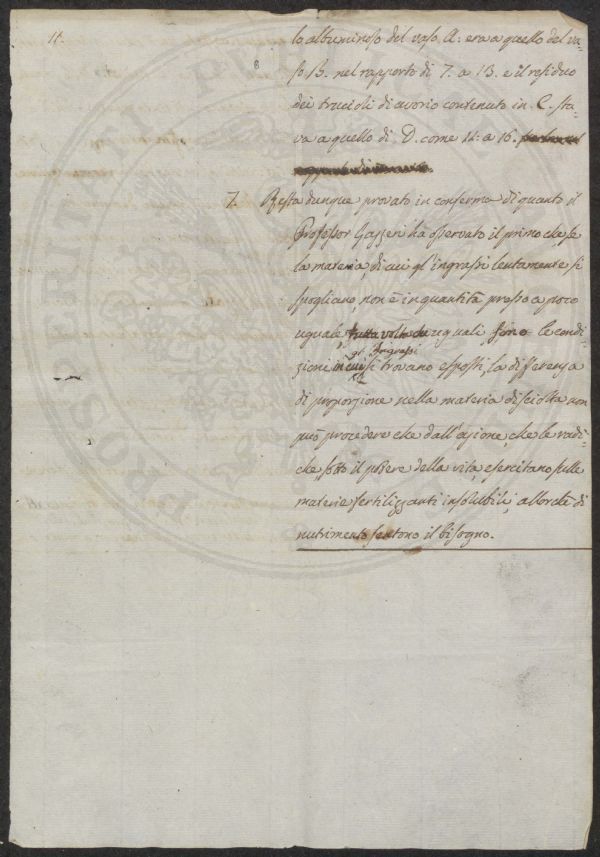 11.
8
lo albuminoso del vaso A: era a quello del va-
so B. nel rapporto di 7. a 13. e il residuo
dei trucioli di avorio contenuto in C. sta-
va a quello di D. come 14: a 16.
7. Resta dunque provato in conferma di quanto il
Professor Gazzeri ha osservato il primo che, se
la materia, di cui gl'ingrassi lentamente si
spogliano, non è in quantità presso a poco
uguale, tutta volta che uguali sono le condi-
gl' Ingrassi
zioni in cui si trovano esposti, la differenza
di proporzione nella materia disciolta non
può procedere che dall'azione, che le radi-
che, sotto il potere della vita, esercitano sulle
materie fertilizzanti insolubili, allorchè di
nutrimento sentono il bisogno.
PROSPERITATI PUBLICAE